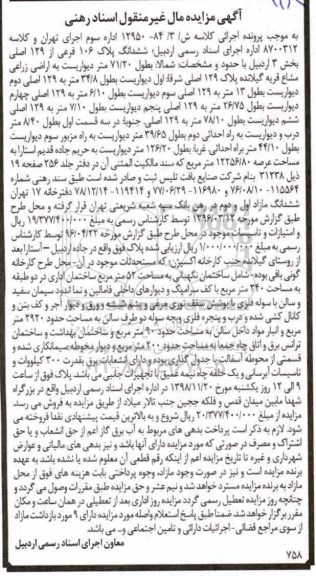 آگهی مزایده مال غیر منقول اسناد رهنی
به موجب پرونده اجرائی کلاسه ش/۳ /۸۴- ۱۲۹۵۰ اداره سوم اجرای تهران و کلاسه
۸۷۰۰۳۱۲ اداره اجرای اسناد رسمی اردبیل؛ ششدانگ پلاک ۱۰۶ فرعی از ۱۲۹ اصلی
بخش ۳ اردبیل با حدود و مشخصات شمالا: بطول ۷۱/۲۰ متر دیواریست به اراضی زراعی
مشاع قریه گیلانده پلاک ۱۲۹ اصلی شرقا: اول دیواریست بطول ۳۴/۸ متر به ۱۲۹ اصلی دوم
دیواریست بطول ۱۳ متر به ۱۲۹ اصلی سوم دیواریست بطول ۶/۱۰ متر به ۱۲۹ اصلی چهارم
دیواریست بطول ۲۶/۷۵ متر به ۱۲۹ اصلی پنجم دیواریست بطول ۷/۱۰ متر به ۱۲۹ اصلی
ششم دیواریست بطول ۷۸/۱۰ متر به ۱۲۹ اصلی. جنوبا: در سه قسمت اول بطول ۸/۴۰ متر
درب و دیواریست به راه احداثی دوم بطول ۳۹/۶۵ متر دیواریست به راه مزبور سوم دیواریست
بطول ۴۴/۱۰ متر براه احداثی. غربا: بطول ۱۲۶/۲۰ متر دیواریست به حریم جاده قدیم آستارا به
مساحت عرصه ۱۲۲۵۶/۸۰ متر مربع که سند مالکیت المثنی آن در دفتر جلد ۲۵۶ صفحه ۱۹
ذیل ۳۱۲۳۸ بنام شرکت صنایع بافت تلیس ثبت و صادر شده است طبق سند رهنی شماره
۱۱۵۵۶۴- ۷۶/۰۸/۱۰ و ۱۱۶۹۸۰- ۷۷/۰۶/۲۹ و ۱۱۹۴۱۴- ۷۸/۱۲/۱۴ دفترخانه ۱۷ تهران
ششدانگ مازاد اول و دوم در رهن بانک سپه شعبه شریعتی تهران قرار گرفته و محل طرح
طبق گزارش مورخه ۱۳۹۶/۰۳/۱۲ توسط کارشناس رسمی به مبلغ ۱۹/۳۷۷/۴۰۰/۰۰۰ ریال
و امتیازات و تاسیسات موجود در محل طرح طبق گزارش مورخه ۹۶/۰۴/۲۲ توسط کارشناس
رسمی به مبلغ ۱/۰۰۰/۰۰۰/۰۰۰ ریال ارزیابی شده پلاک فوق واقع در جاده اردبیل – آستارا بعد
از روستای گیلانده جنب کارخانه آکسون؛ که مستحدثات موجود در آن- محل طرح کارخانه
گونی بافی بوده- شامل ساختمان نگهبانی به مساحت ۵۲ متر مربع ساختمان اداری در دو طبقه
به مساحت ۲۴۰ متر مربع با کف سرامیک و دیوارهای داخلی فامالین و نما اندود سیمان سفید
و سالن با سوله فلزی با پوشش سقف توری مرغی و پشم شیشه و ورق و دیوار آجر و کف بتن و
کانال کشی شده و درب و پنجره فلزی و بچه سوله دو طرف سالن به مساحت حدود ۲۹۲۰ متر
مربع و انبار مواد داخل سالن به مساحت حدود ۹۰ متر مربع و ساختمان بهداشت و ساختمان
ترانس برق و اتاق چاه جمعا به مساحت حدود ۲۰۰ متر مربع و دیوار محوطه سیمانکاری شده و
قسمتی از محوطه آسفالت با جدول گذاری بوده و دارای انشعابات برق بقدرت ۳۰۰ کیلووات و
تاسیسات آبرسانی و یک حلقه چاه نیمه عمیق با تجهیزات جانبی می باشد. پلاک فوق از ساعت
۹ الی ۱۲ روز یکشنبه مورخ ۱۳۹۸/۱۱/۲۰ در اداره اجرای اسناد رسمی اردبیل واقع در بزرگراه
شهدا مابین میدان قدس و فلکه ججین جنب تالار میلاد از طریق مزایده به فروش می رسد.
مزایده از مبلغ ۲۰/۳۷۷/۴۰۰/۰۰۰ ریال شروع و به بالاترین قیمت پیشنهادی نقدا فروخته می
شود. لازم به ذکر است پرداخت بدهی های مربوط به آب برق گاز اعم از حق انشعاب و یا حق
اشتراک و مصرف در صورتی که مورد مزایده دارای آنها باشد و نیز بدهی های مالیاتی و عوارض
شهرداری و غیره تا تاریخ مزایده اعم از اینکه رقم قطعی آن معلوم شده یا نشده باشد به عهده
برنده مزایده است و نیز در صورت وجود مازاد، وجوه پرداختی بابت هزینه های فوق از محل
مازاد به برنده مزایده مسترد خواهد شد و نیم عشر و حق مزایده طبق مقررات وصول می گردد و
چنانچه روز مزایده تعطیل رسمی گردد مزایده روز اداری بعد از تعطیلی در همان ساعت و مکان
مقرر برگزار خواهد شد. ضمنا طبق پاسخ استعلام واصله مورد مزایده دارای ۹ مورد بازداشت مازاد
از سوی مراجع قضائی- اجرائیات دارائی و تامین اجتماعی و... می باشد.
معاون اجرای اسناد رسمی اردبیل
۷۵۸